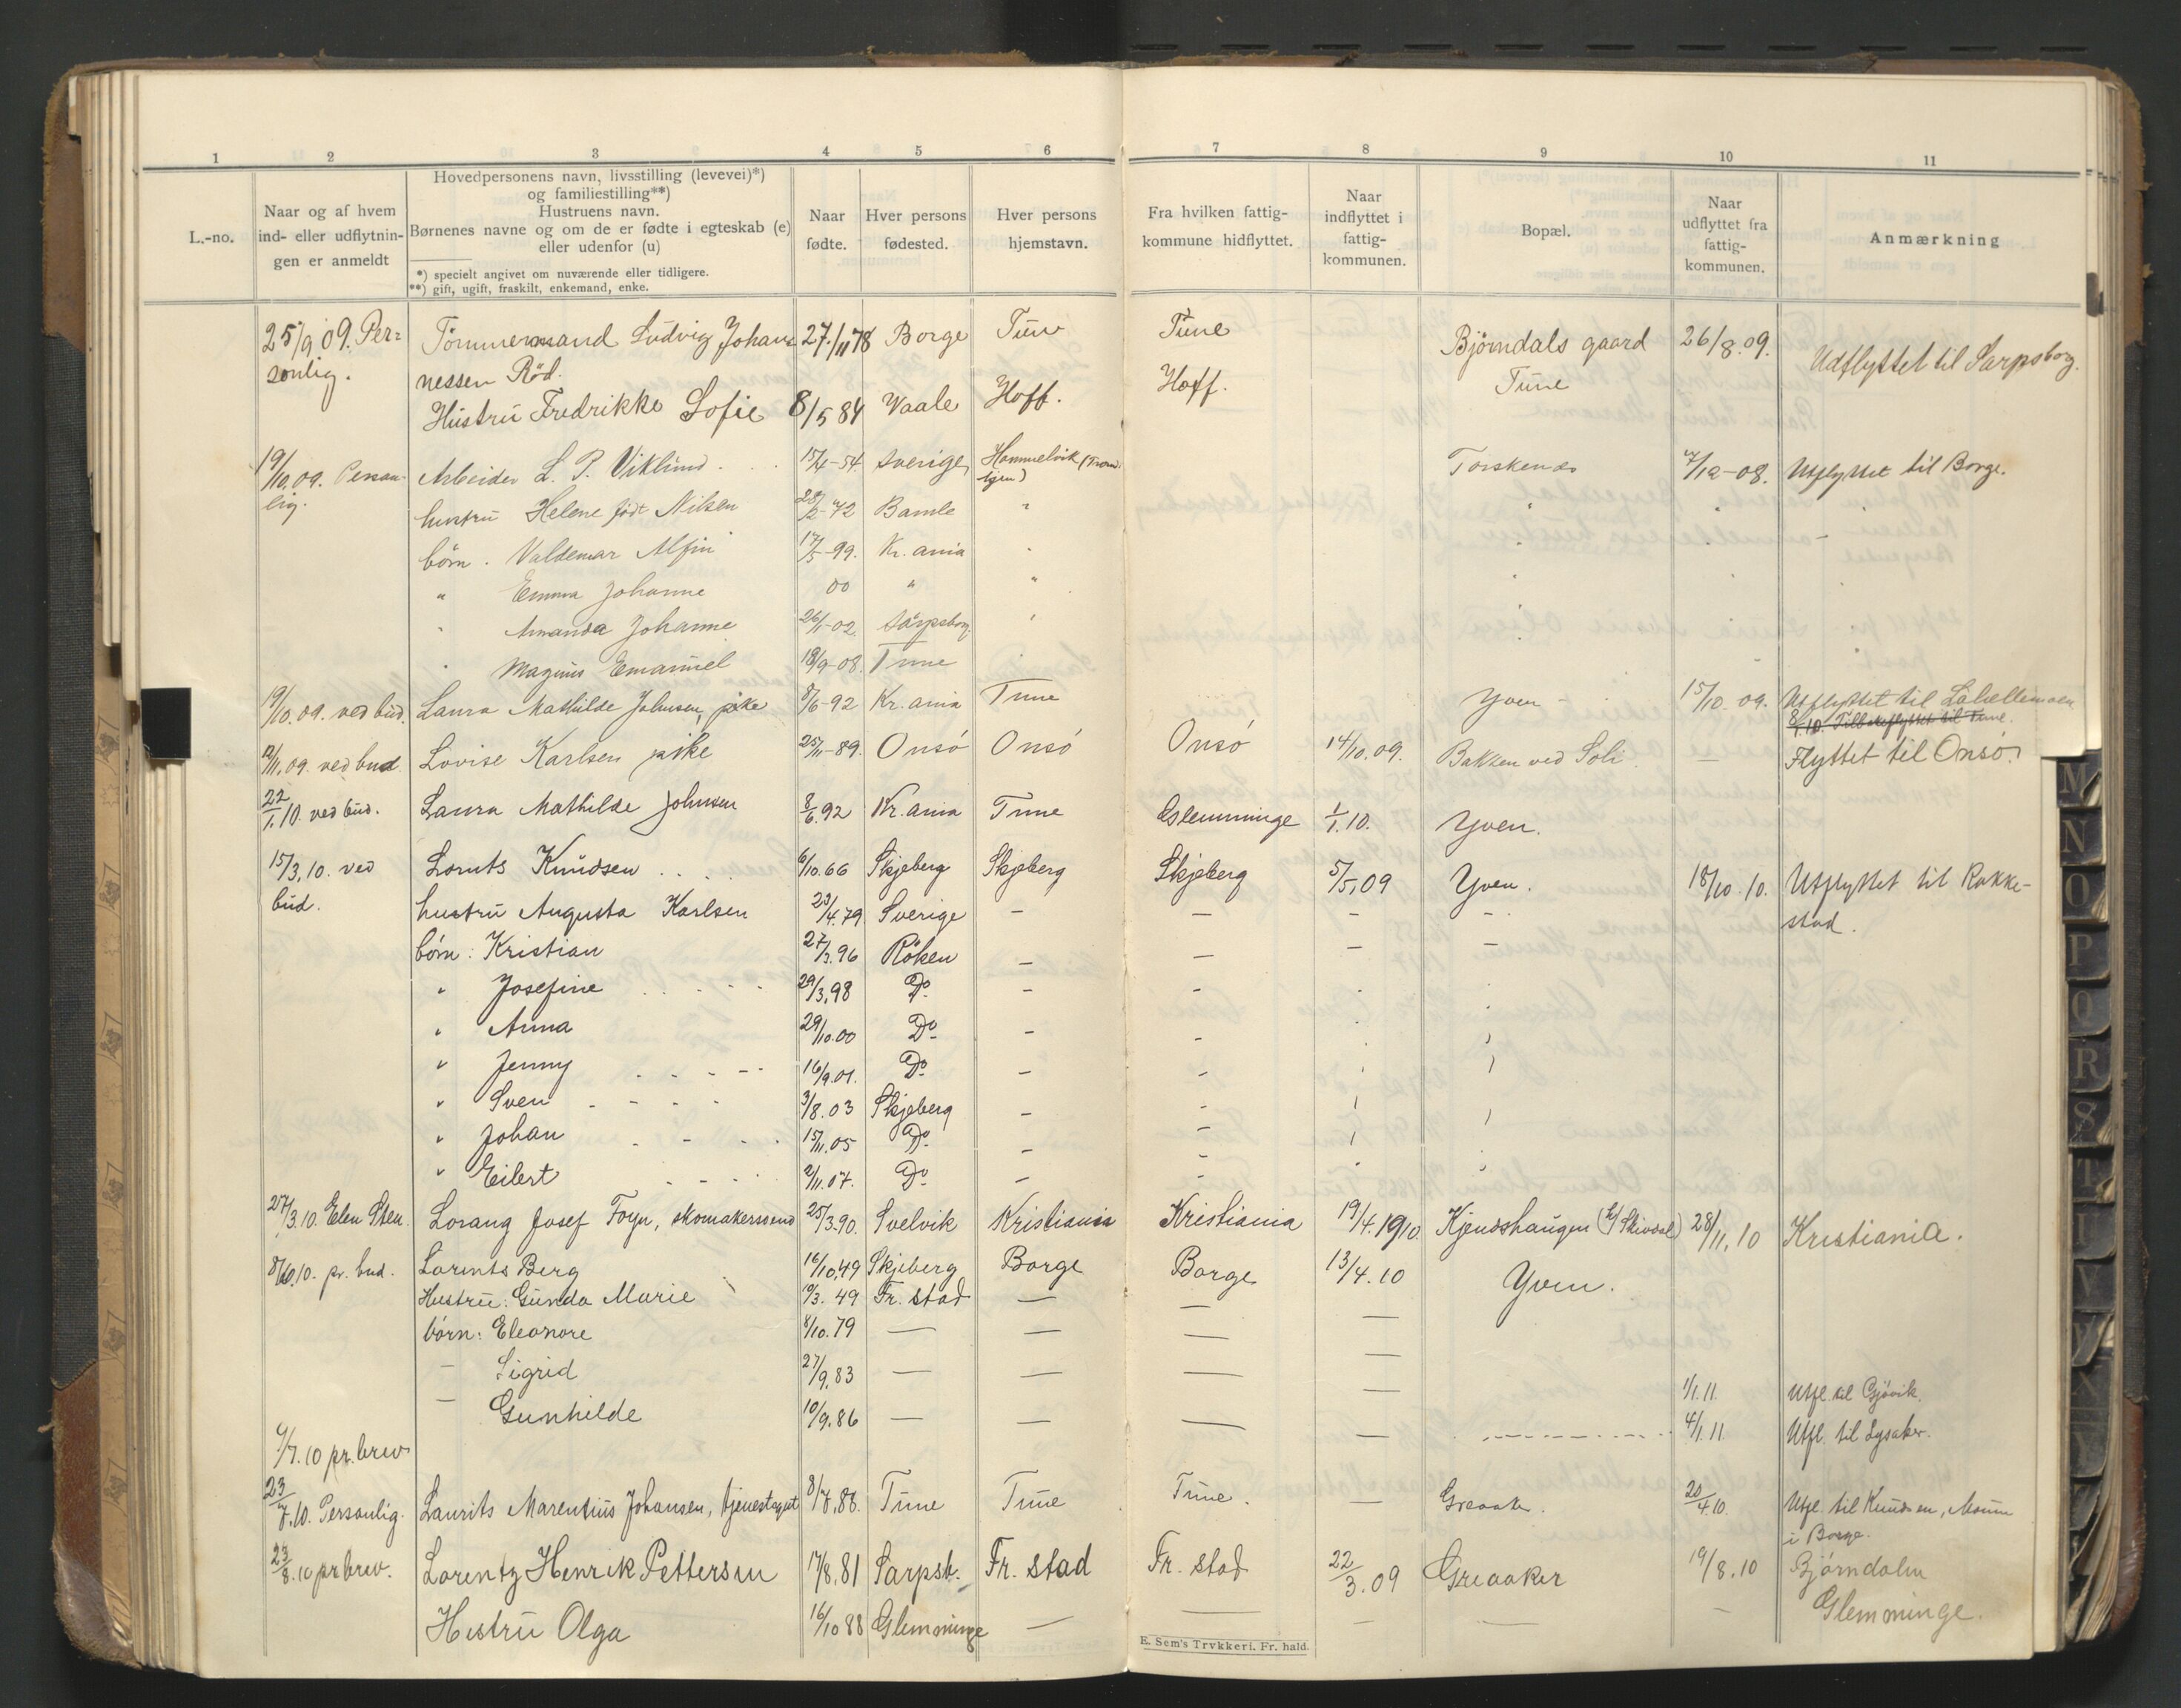 1 2 3 4 5 6 7 8 9 10 11
L.-no.
Naar og af hvem
ind- eller udflytnin-
gen er anmeldt
Hovedpersonens navn, livsstilling (levevei)*)
og familiestilling**)
Hustruens navn.
Børnenes navne og om de er fødte i egteskab (e)
eller udenfor (u)
*) specielt angivet om nuværende eller tidligere.
**) gift, ugift, fraskilt, enkemand, enke.
Naar
fødte.
Hver persons
fødested.
Hver persons
hjemstavn.
Fra hvilken fattig-
kommune hidflyttet.
Naar
indflyttet i
fattig-
kommunen.
Bopæl.
Naar
udflyttet fra
fattig-
kommunen.
Anmærkning
25/9 09. Per= Tömmermand Ludvig Johan 27/11 78 Borge Tune Tune Bjørndals gaard 26/8.09. Udflyttet til Sarpsborg.
sonlig. nessen Röd. Tune
Hustrü Fredrikke Sofie 8/5 84 Vaale Hoff. Hoff.
19/10.09. Person- Arbeider L. P. Viklund 15/4-54 Sverige Hommelvik (Trond Torskenæs 7/12-08. Utflyttet til Borge.
lig. hjem)
hustrü Helene født Nilsen 28/2-72 Bamle "
börn. Valdemar Alfin 17/5-99. Kr.ania "
" Emma Johanne 00 " "
" Amanda Johanne 26/1-02 Sarpsborg "
" Magnus Emanüel 18/9-08. Tune
19/10.09. ved büd. Laura Mathilde Johnsen, pike 8/6-92 Kr.ania Tune Yven 15/10.09. Utflyttet til
8/1.10. Tilbakeflyttet til Tune.
12/11.09. ved bud Lovise Karlsen pike 25/11-89. Onsö Onsö Onsö 14/10.09. Bakken ved Soli — Flyttet til Onsö.
22/1.10. ved büd. Laura Mathilde Johnsen 8/6.92 Kr.ania Tune Glemminge 1/1.10. Yven.
15/3.10. ved Lornts Knüdsen 6/10.66 Skjeberg Skjeberg Skjeberg 5/5.09 Yven. 18/10.10. Utflyttet til Rakke-
büd. hustrü Augusta Karlsen 23/4.79 Sverige — — - - stad.
börn: Kristian 27/3.96 Röken — — — —
" Josefine 29/3.98 Do - -
" Anna 29/10.00 Do - -
" Jenny 16/9.01. Do - -
" Sven 3/8.03 Skjeberg - -
" Johan 15/11.05 Do - -
" Eilert 2/11.07. Do - -
27/3.10. Elen Sten Lorang Josef Foyn, skomakersvend 25/3.90. Svelvik Kristiania Kristiania 19/4.1910 Kjendshaugen 28/11.10 Kristiania.
8/10.10. pr. bud. Lorents Berg 16/10.49 Skjeberg Borge Borge 13/4.10 Yven.
Hustrü: Günda Marie 19/3.49 Fr. stad — — —
börn: Eleonore 8/10.79 — — — —
— Sigrid 27/9.83 — — — — 1/1.11. Utfl. til Gjövik.
— Gunhilde 10/9.86 — — — — 4/1.11 Utfl. til Lysaker.
9/7.10 pr. brev
23/7.10. Personlig. Laurits Marentius Johansen, tjenestegut 8/7.88. Tune Tune Tune. — Greaaker. 20/4.10. Utfl. til Knudsen, Moum
i Borge.
23/8.10 pr brev. Lorentz Henrik Pettersen 17/8.81 Sarpsb. Fr. stad Fr. stad 22/3.09 Greaaker 19/8.10 Bjørndalen
Hustrü Olga 16/10 88 Glemminge — — — — — Glemminge.
E. Sem's Trykkeri. Fr. hald.
M
N
O
P
Q
R
S
T
U
V